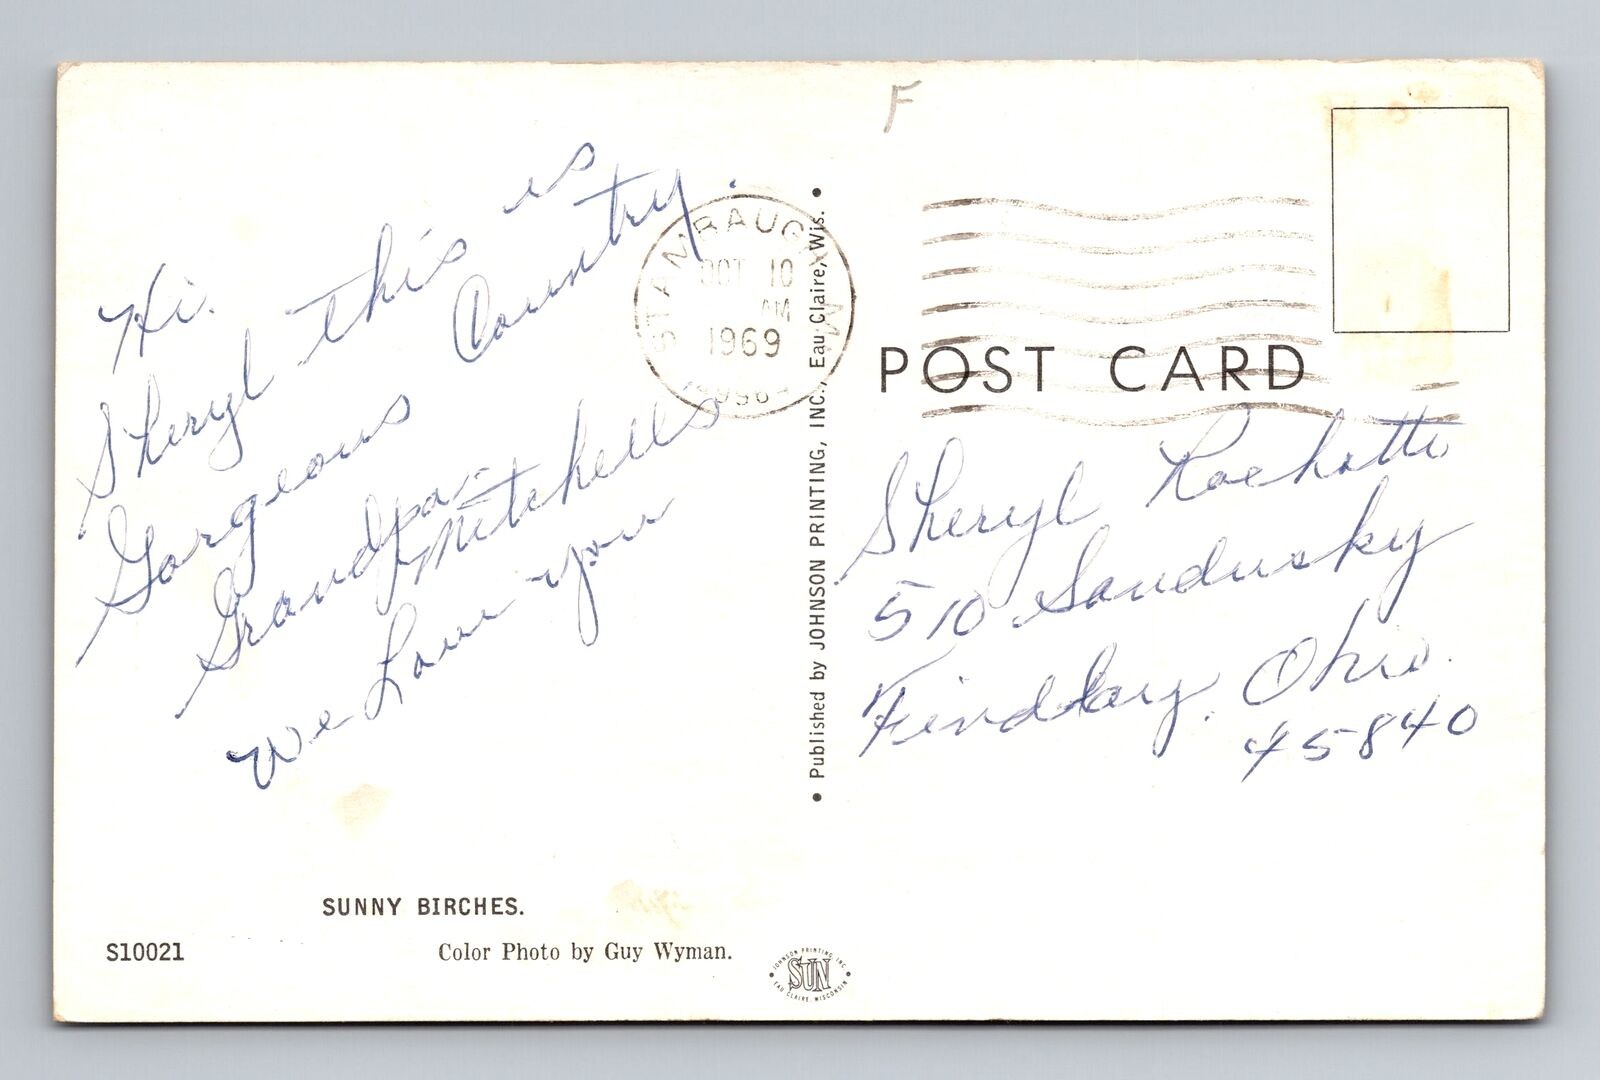 F
Hi.
Sheryl this is
Gorgeous Country.
Grandpa
Mitchells
we Love you
STAMBAUGH MI
OCT 10
AM
1969
POST CARD
Sheryl Rochotte
510 Sandusky
Findlay. Ohio.
45840
• Published by JOHNSON PRINTING, INC., Eau Claire, Wis. •
SUNNY BIRCHES.
S10021
Color Photo by Guy Wyman.
JOHNSON PRINTING INC
SUN
EAU CLAIRE, WISCONSIN